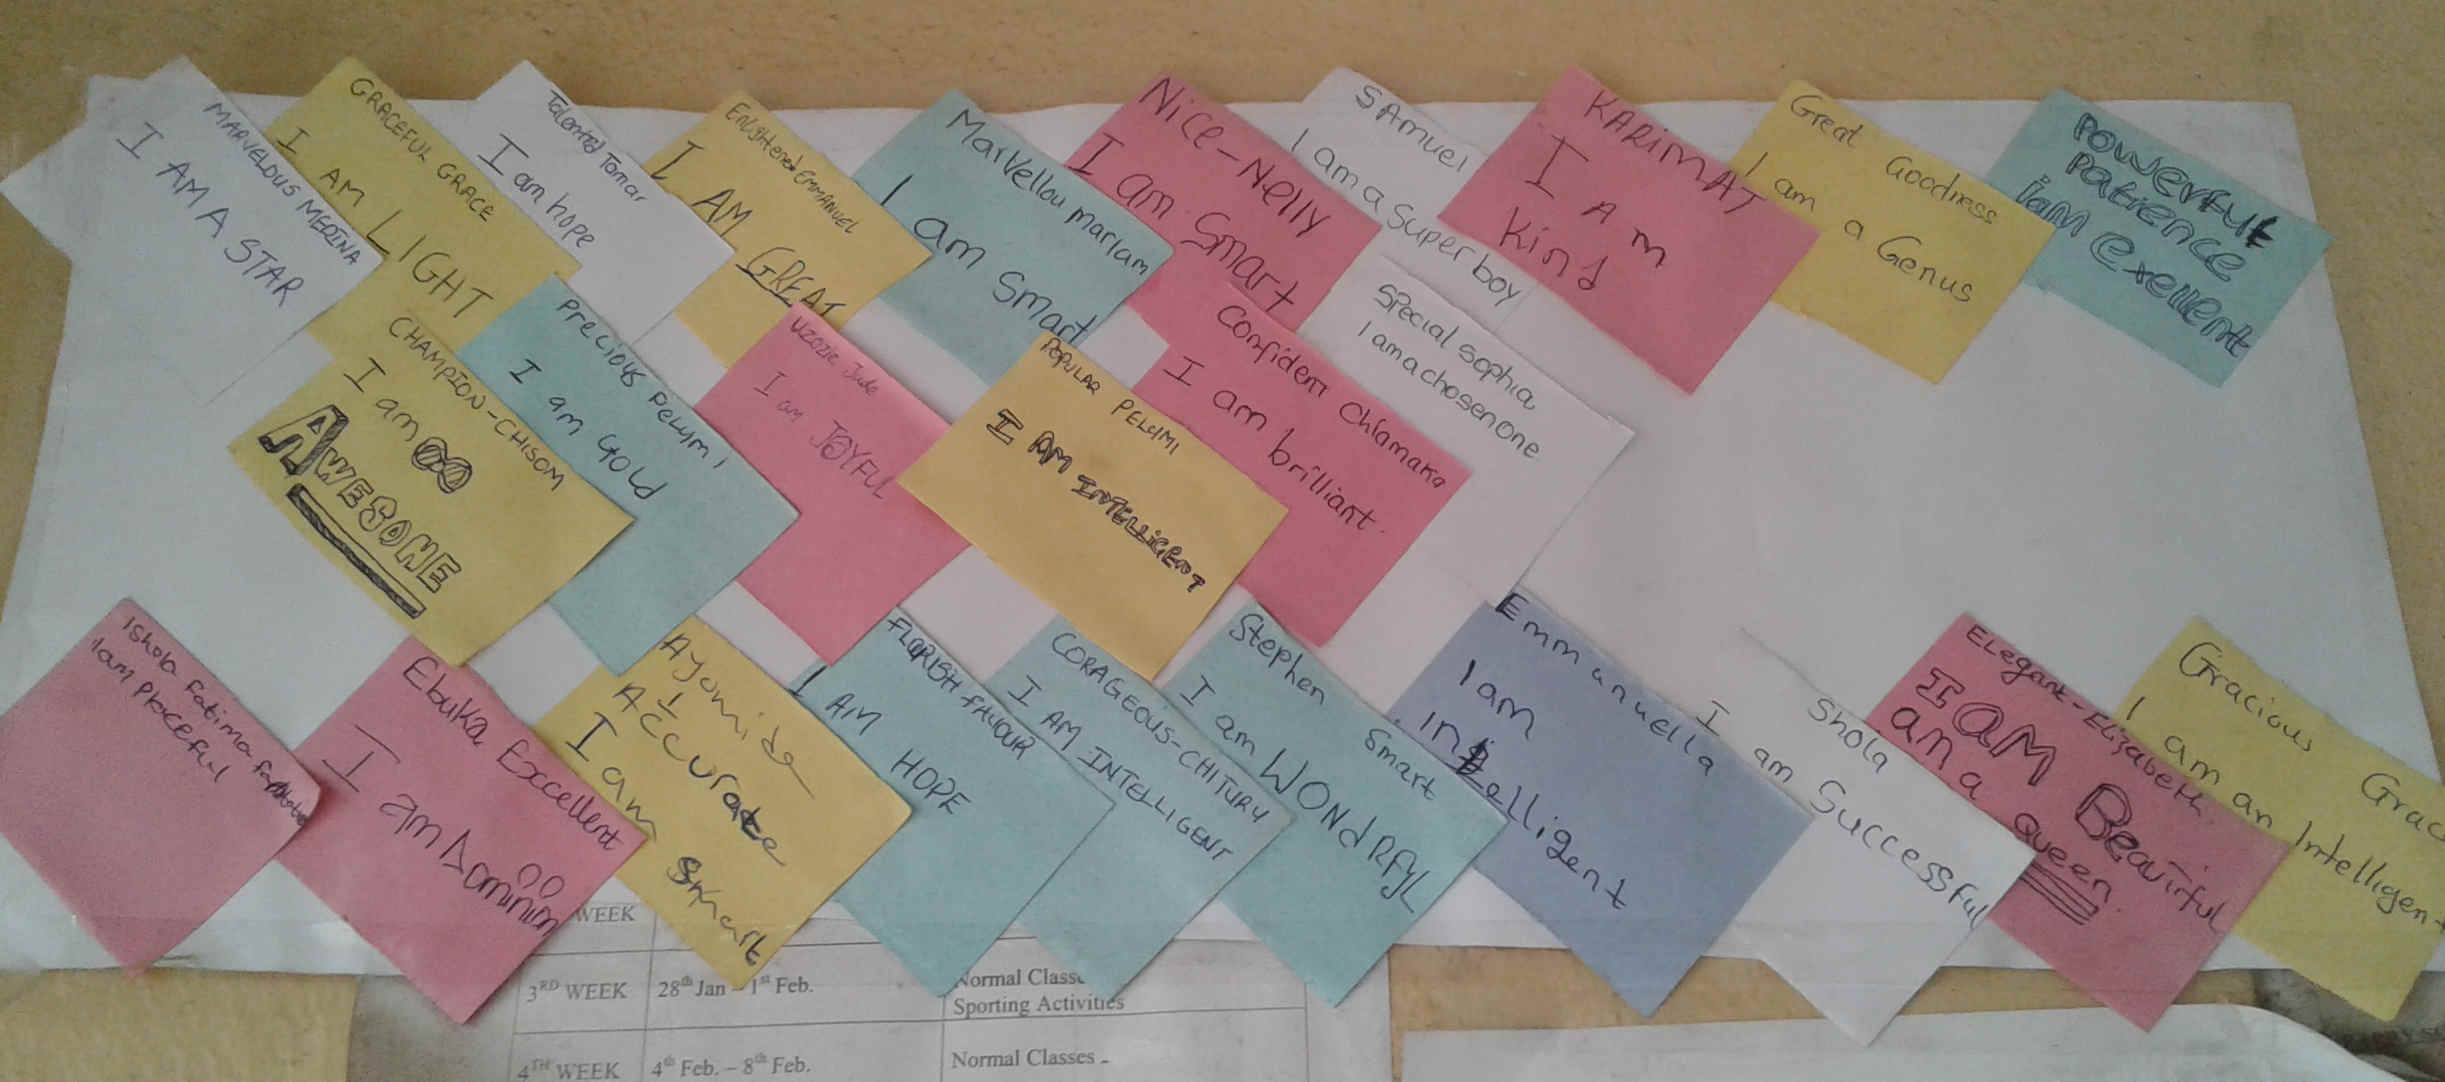 MARVELOUS MEDINA
I AM A STAR
GRACEFUL GRACE
I AM LIGHT
Talented Tomar
I am hope
ENlightened EMMANUEL
I AM
GREAT
Marvellou mariam
I am Smart
Nice-Nelly
I am Smart
SAmuel
I am a Super boy
KARimAT
I Am
kind
Great Goodness
I am a Genus
POWERFUL
Patience
i am Exellent
CHAMPION-CHISOM
I am
AWESOME
Precious Pelumi
I am Gold
Uzozie Jude
I am JOYFUL
POPULAR PELUMI
I AM INTELLiGENT
Confident Chiamaka
I am brilliant.
Special Sophia
I am a chosen One
Ishola Fatima
I am Peaceful
Ebuka Excellent
I am Dominion
Ayomide
Accurate
I am
Smart
FLORISH FAVOUR
I AM HOPE
CORAGEOUS-CHITURU
I AM INTELLIGENT
Stephen Smart
I am WONdRFUL
Emmanuella
I am
intelligent
Shola
I am Successful
Elegant-Elizabeth
I AM Beautiful
an a queen.
Gracious Grac
I am an Intelligent
WEEK
3RD WEEK 28th Jan – 1st Feb. Normal Classe
Sporting Activities
4TH WEEK 4th Feb. – 8th Feb. Normal Classes -